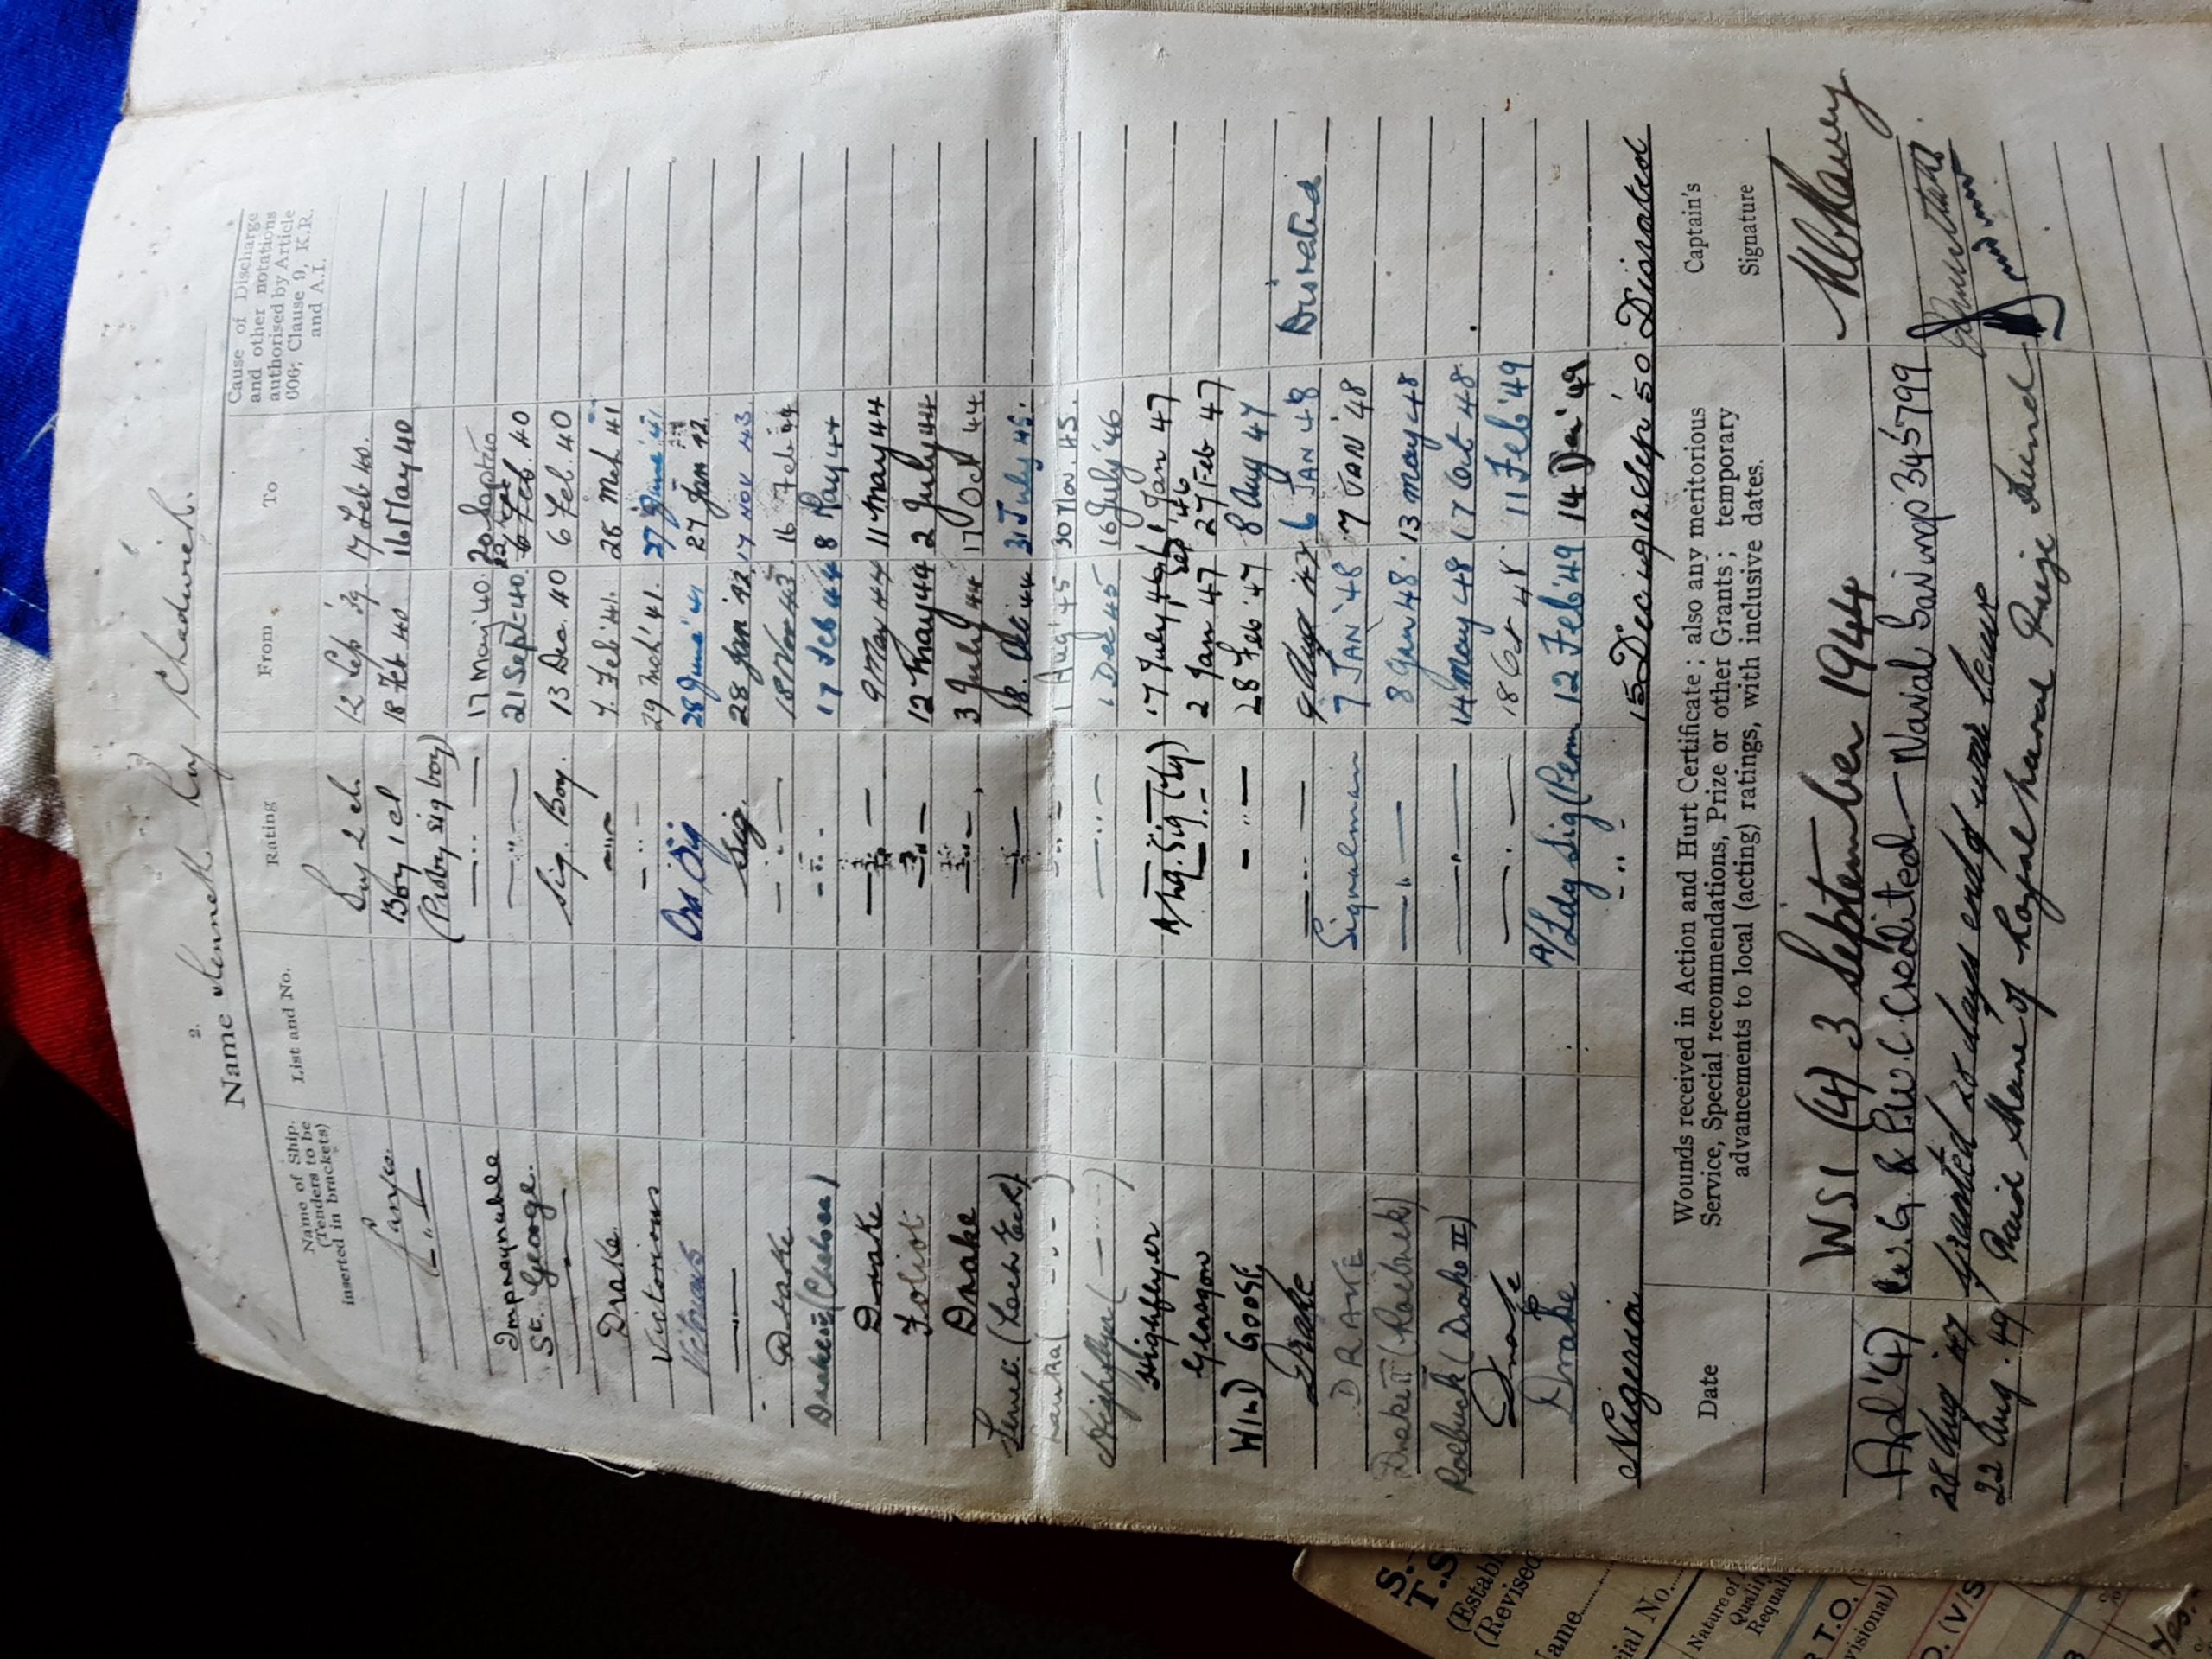 2.
Name Kenneth Roy Chadwick.
Name of Ship. (Tenders to be inserted in brackets) List and No. Rating From To Cause of Discharge and other notations authorised by Article 606, Clause 9, K.R. and A.I.
Ganges. Boy 2 cl. 12 Sep '39 17 Feb 40.
— " — Boy 1 cl 18 Feb 40 16 May 40
(Prob'y sig boy)
Impregnable — " — 17 May 40. 20 Sept 40
St. George. — " — 21 Sept 40.
— " — Sig. Boy. 13 Dec. 40 6 Feb. 40
Drake. — " — 7 Feb '41. 28 Mch 41
Victorious — " — 29 Mch '41. 27 June '41
Victorious Ord Sig 28 June '41 27 Jan 42.
— " — Sig. 28 Jan '42. 17 NOV 43
Drake — " — 18 Nov 43. 16 Feb 44
Drake IV (Chelsea) — " — 17 Feb 44 8 May 44
Drake — " — 9 May 44 11 May 44
Foliot — " — 12 May 44 2 July 44
Drake — " — 3 July 44 17 Oct 44
(Loch Eck) — " — 18. Oct 44 31 July 45.
— " — 1 Aug '45 30 Nov. 45.
Highflyer ( — " — ) — " — 1 Dec 45 16 July '46
Highflyer — " — 17 July 46 1 Jan 47
A/Ldg. Sig (Ty) Sep '46
Glasgow — " — 2 Jan 47 27 Feb 47
WILD GOOSE — " — 28 Feb '47 8 Aug 47
Drake — " — 9 Aug 47 6 JAN 48 Disrated
DRAKE Signalman 7 JAN '48 7 JAN '48
Drake II (Roebuck) — " — 8 Jan 48. 13 May 48
Roebuck (Drake II) — " — 14 May 48 17 Oct 48.
Drake — " — 18 Oct 48. 11 Feb '49
Drake A/Ldg Sig (Perm 12 Feb '49 14 Dec '49
Nigeria — " — 15 Dec '49 12 Sep '50 Disrated
Date Wounds received in Action and Hurt Certificate; also any meritorious Service, Special recommendations, Prize or other Grants; temporary advancements to local (acting) ratings, with inclusive dates. Captain's Signature
WSI (4) 3 September 1944
Apl '47 W.G. & P.W.C. Credited — Naval Savings 345799
28 Aug 47 Granted 28 days end of war leave
22 Aug. 49 Paid Share of Royal Naval Prize Fund
S.
T.S
(Establ
(Revised
Name
ial No.
Nature of
Qualif
Requali
T.O.
visional)
(V/S
Yes.